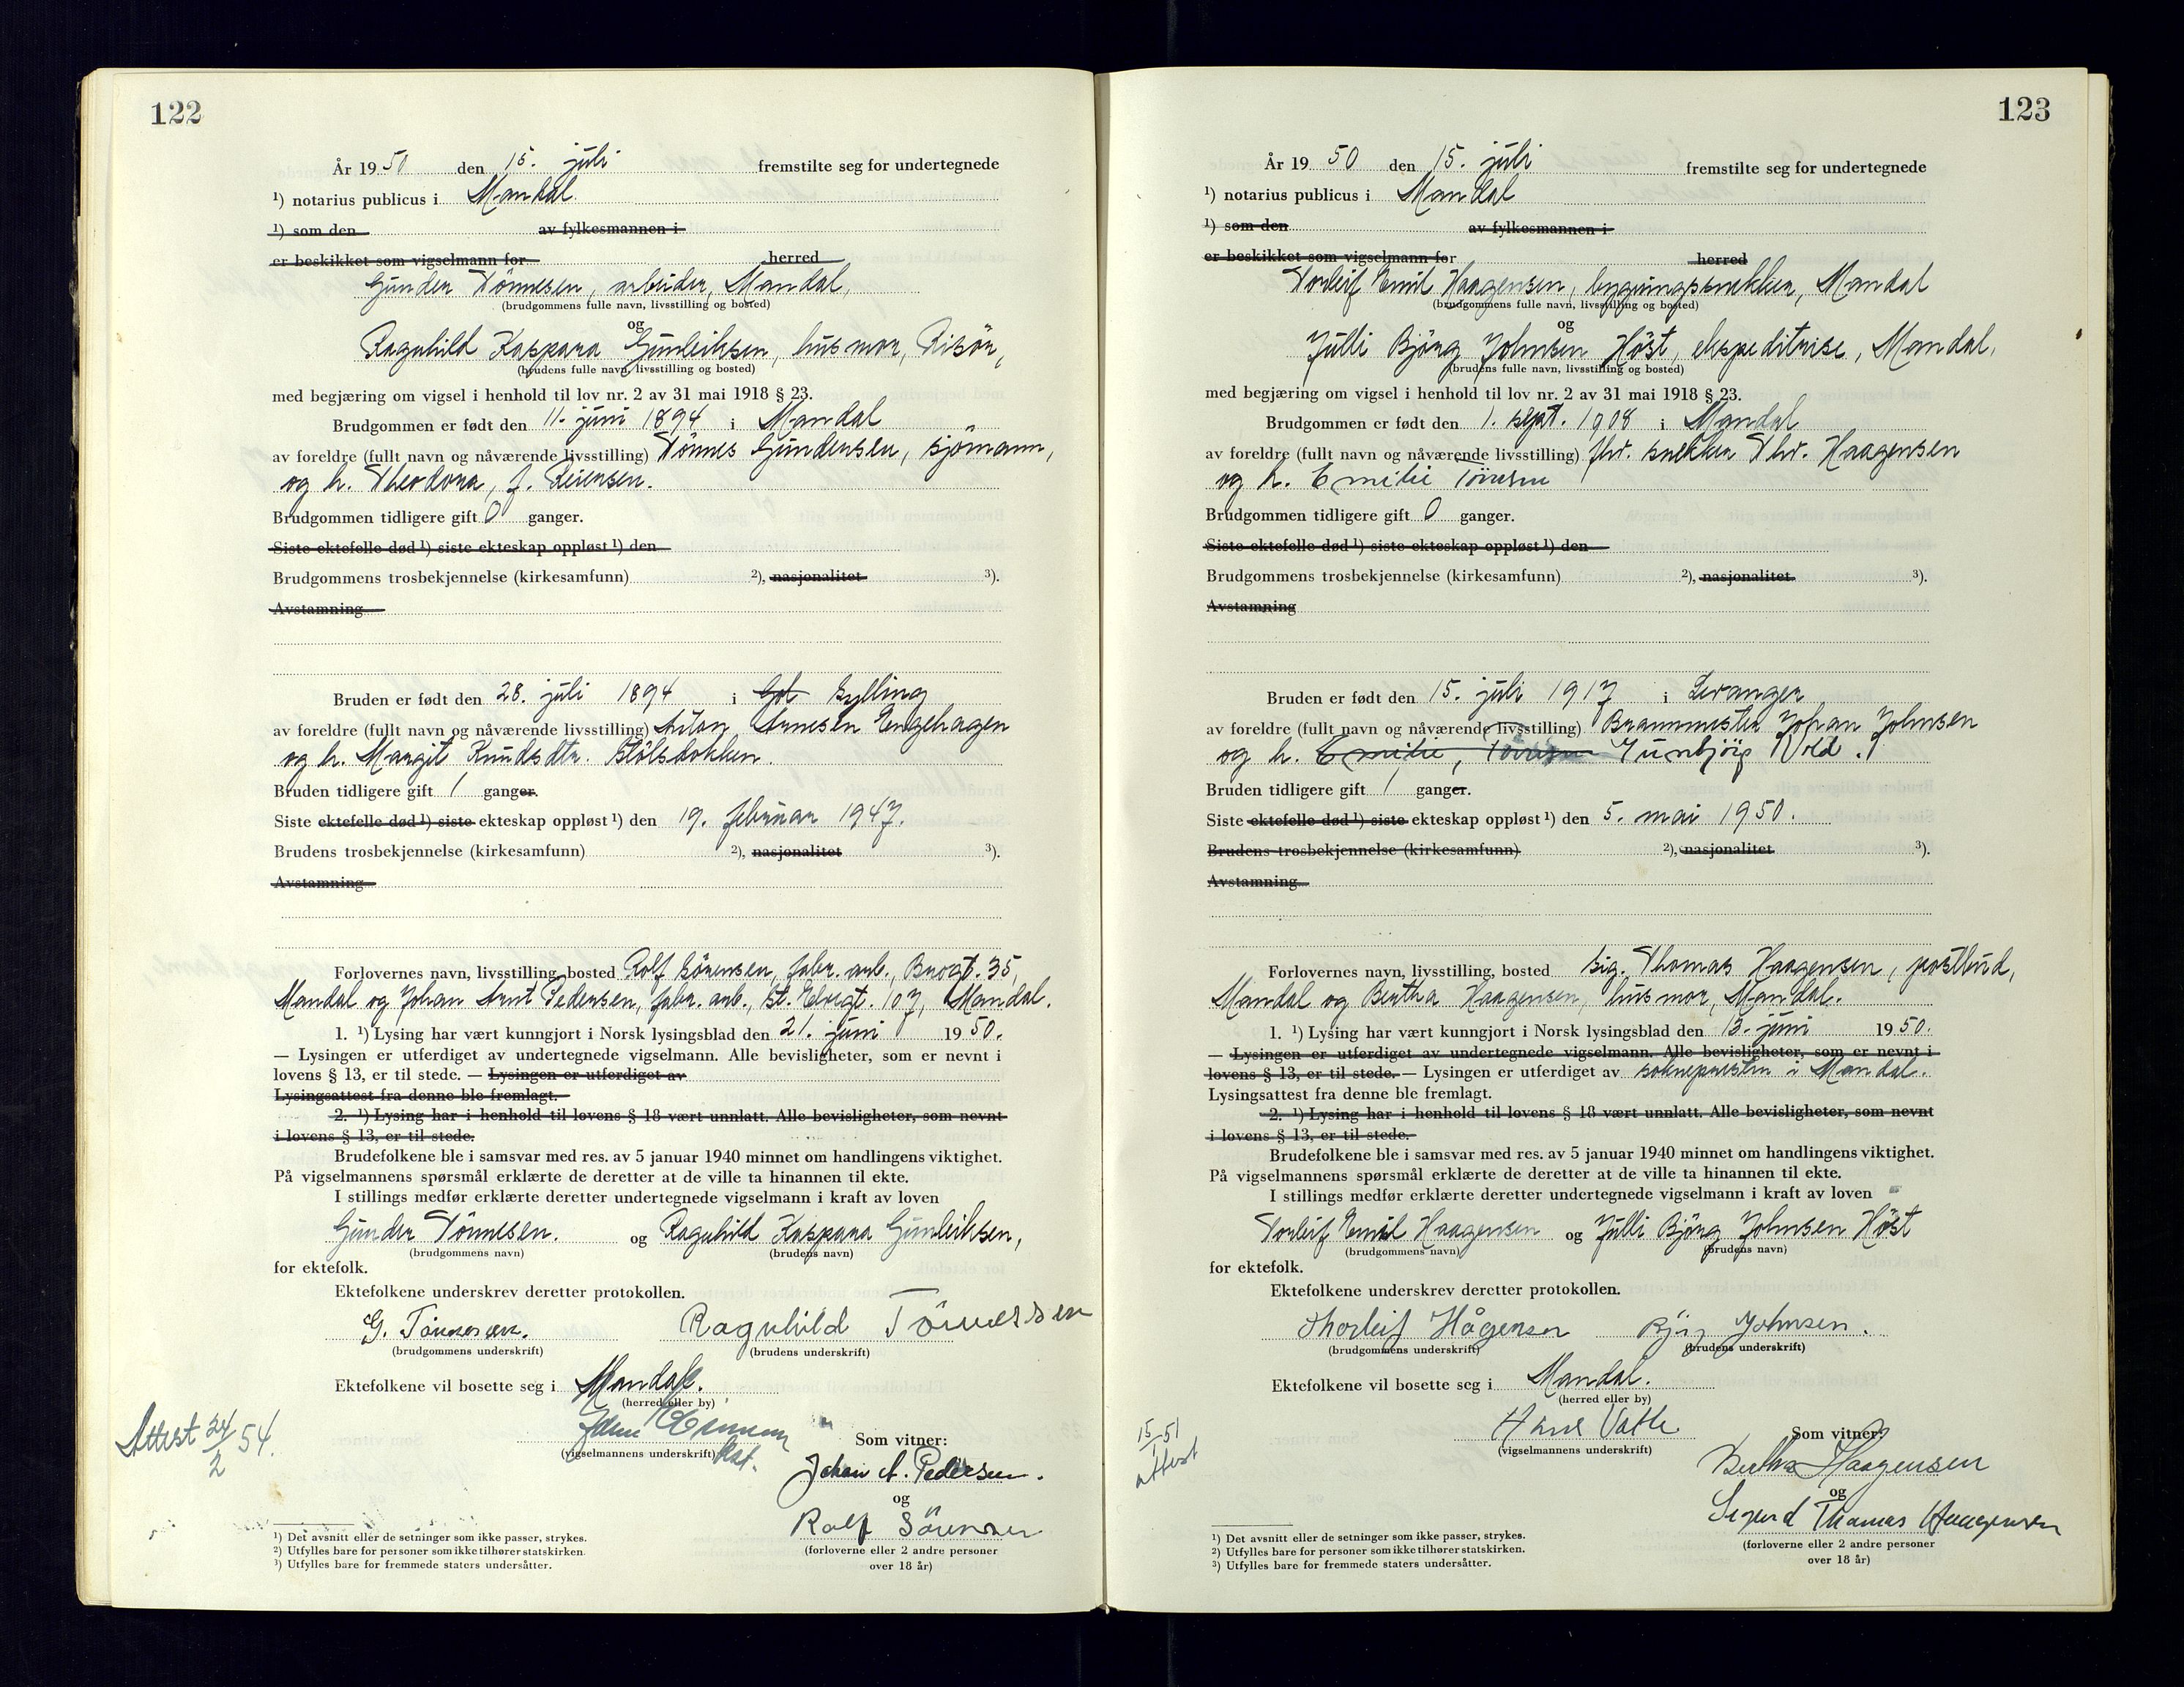 122
År 1950 den 15. juli fremstilte seg for undertegnede
¹) notarius publicus i Mandal.
¹) som den av fylkesmannen i
er beskikket som vigselmann for herred
Gunder Tönnesen, arbeider, Mandal,
(brudgommens fulle navn, livsstilling og bosted)
og
Ragnhild Kaspara Gunleiksen, husmor, Risör,
(brudens fulle navn, livsstilling og bosted)
med begjæring om vigsel i henhold til lov nr. 2 av 31 mai 1918 § 23.
Brudgommen er født den 11. juni 1894 i Mandal
av foreldre (fullt navn og nåværende livsstilling) Tönnes Gundersen, sjömann,
og h. Theodora, f. Reiersen.
Brudgommen tidligere gift 0 ganger.
Siste ektefelle død ¹) siste ekteskap oppløst ¹) den
Brudgommens trosbekjennelse (kirkesamfunn) ²), nasjonalitet ³).
Avstamning
Bruden er født den 28. juli 1894 i Gol Sylling
av foreldre (fullt navn og nåværende livsstilling) Anton Arnesen Engehagen
og h. Margit Knudsdtr. Stölsdokken.
Bruden tidligere gift 1 ganger.
Siste ektefelle død ¹) siste ekteskap oppløst ¹) den 19. februar 1947.
Brudens trosbekjennelse (kirkesamfunn) ²), nasjonalitet ³).
Avstamning
Forlovernes navn, livsstilling, bosted Rolf Sörensen, fabr. arb., Brogt. 35,
Mandal og Johan Arnt Pedersen, fabr. arb., St. Elvegt. 107, Mandal.
1. ¹) Lysing har vært kunngjort i Norsk lysingsblad den 21. juni 1950.
— Lysingen er utferdiget av undertegnede vigselmann. Alle bevisligheter, som er nevnt i
lovens § 13, er til stede. — Lysingen er utferdiget av
Lysingsattest fra denne ble fremlagt.
2. ¹) Lysing har i henhold til lovens § 18 vært unnlatt. Alle bevisligheter, som nevnt
i lovens § 13, er til stede.
Brudefolkene ble i samsvar med res. av 5 januar 1940 minnet om handlingens viktighet.
På vigselmannens spørsmål erklærte de deretter at de ville ta hinannen til ekte.
I stillings medfør erklærte deretter undertegnede vigselmann i kraft av loven
Gunder Tönnesen. og Ragnhild Kaspara Gunleiksen,
(brudgommens navn) (brudens navn)
for ektefolk.
Ektefolkene underskrev deretter protokollen.
G. Tönnesen. Ragnhild Tönnessen
(brudgommens underskrift) (brudens underskrift)
Ektefolkene vil bosette seg i Mandal.
(herred eller by)
Attest 24/2 54.
(vigselmannens underskrift)
Som vitner:
Johan A. Pedersen.
og
Rolf Sörensen
(forloverne eller 2 andre personer
over 18 år)
¹) Det avsnitt eller de setninger som ikke passer, strykes.
²) Utfylles bare for personer som ikke tilhører statskirken.
³) Utfylles bare for fremmede staters undersåtter.
123
År 1950 den 15. juli fremstilte seg for undertegnede
¹) notarius publicus i Mandal
¹) som den av fylkesmannen i
er beskikket som vigselmann for herred
Torleif Emil Haagensen, bygningssnekker, Mandal
(brudgommens fulle navn, livsstilling og bosted)
og
Julli Björg Johnsen Höst, ekspeditrise, Mandal,
(brudens fulle navn, livsstilling og bosted)
med begjæring om vigsel i henhold til lov nr. 2 av 31 mai 1918 § 23.
Brudgommen er født den 1. sept. 1908 i Mandal
av foreldre (fullt navn og nåværende livsstilling) fhv. snekker Thv. Haagensen
og h. Emilie Törresen
Brudgommen tidligere gift 0 ganger.
Siste ektefelle død ¹) siste ekteskap oppløst ¹) den
Brudgommens trosbekjennelse (kirkesamfunn) ²), nasjonalitet ³).
Avstamning
Bruden er født den 15. juli 1917 i Levanger
av foreldre (fullt navn og nåværende livsstilling) Brannmester Johan Johnsen
og h. Emilie, Törresen Gunbjörg Vold.
Bruden tidligere gift 1 ganger.
Siste ektefelle død ¹) siste ekteskap oppløst ¹) den 5. mai 1950.
Brudens trosbekjennelse (kirkesamfunn) ²), nasjonalitet ³).
Avstamning
Forlovernes navn, livsstilling, bosted Sig. Thomas Haagensen, postbud,
Mandal og Bertha Haagensen, husmor, Mandal.
1. ¹) Lysing har vært kunngjort i Norsk lysingsblad den 13. juni 1950.
— Lysingen er utferdiget av undertegnede vigselmann. Alle bevisligheter, som er nevnt i
lovens § 13, er til stede. — Lysingen er utferdiget av sokneprsten i Mandal.
Lysingsattest fra denne ble fremlagt.
2. ¹) Lysing har i henhold til lovens § 18 vært unnlatt. Alle bevisligheter, som nevnt
i lovens § 13, er til stede.
Brudefolkene ble i samsvar med res. av 5 januar 1940 minnet om handlingens viktighet.
På vigselmannens spørsmål erklærte de deretter at de ville ta hinannen til ekte.
I stillings medfør erklærte deretter undertegnede vigselmann i kraft av loven
Torleif Emil Haagensen og Julli Björg Johnsen Höst
(brudgommens navn) (brudens navn)
for ektefolk.
Ektefolkene underskrev deretter protokollen.
Thorleif Hågensen Björg Johnsen.
(brudgommens underskrift) (brudens underskrift)
Ektefolkene vil bosette seg i Mandal.
(herred eller by)
15/1 51
attest
Hans Vatle
(vigselmannens underskrift)
Som vitner:
Bertha Haagensen
og
Sigurd Thomas Haagensen
(forloverne eller 2 andre personer
over 18 år)
¹) Det avsnitt eller de setninger som ikke passer, strykes.
²) Utfylles bare for personer som ikke tilhører statskirken.
³) Utfylles bare for fremmede staters undersåtter.